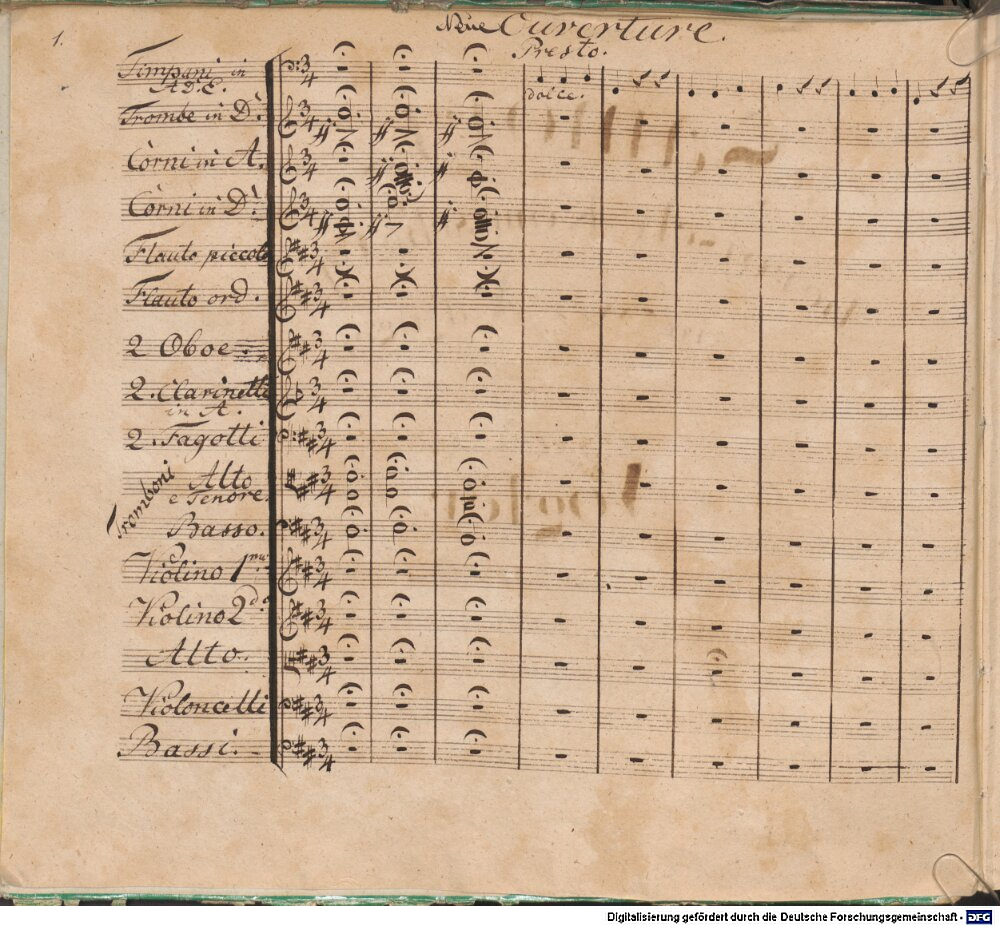 1.
Neue Ouverture.
Presto.
Timpani in
A D. E.
dolce.
Trombe in D.
ff.
ff.
ff.
Corni in A.
ff.
ff.
Corni in D.
ff.
ff.
ff.
Flauto piccolo
Flauto ord.
2 Oboe
2. Clarinetti
in A.
2. Fagotti
Tromboni
Alto
e Tenore.
Basso.
Violino 1mo
Violino 2do
Alto.
Violoncelli
Bassi.
Digitalisierung gefördert durch die Deutsche Forschungsgemeinschaft - DFG